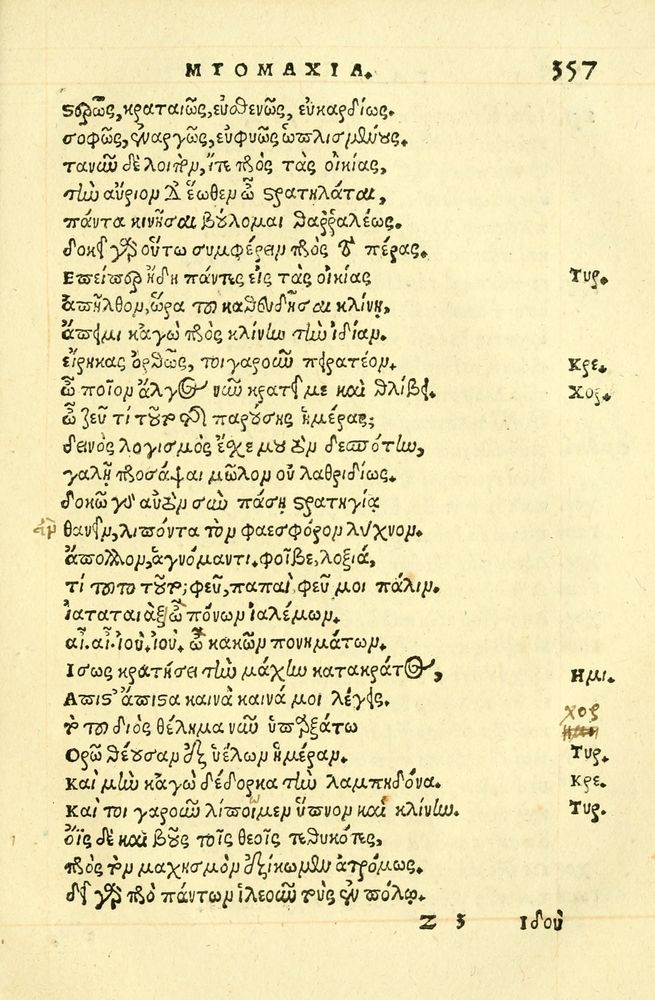 ΜΥΟΜΑΧΙΑ. 357
στερρῶς, κραταιῶς, εὐσθενῶς, εὐκαρδίως.
σοφῶς, ἐναργῶς, εὐφυῶς ὡπλισμένους.
τανῦν δὲ λοιπὸν, ἴτε πρὸς τὰς οἰκίας,
τὴν αὔριον δ' ἕωθεν ὦ στρατηλάται,
πάντα κινῆσαι βούλομαι θαρραλέως.
δοκεῖ γὰρ οὕτω συμφέρειν πρὸς τὸ πέρας.
Επείπερ ἤδη πάντες εἰς τὰς οἰκίας Τυρ.
ἀπῆλθον, ὥρα του καθευδῆσαι κλίνῃ,
ἄπειμι κἀγὼ πρὸς κλίνην τὴν ἰδίαν.
εἴρηκας ὀρθῶς, τοιγαροῦν πειρατέον. Κρε.
ὦ ποῖον ἄλγος νῦν κρατεῖ με καὶ θλίβει. Χορ.
ὦ ζεῦ τί τοὖργον παρούσης ἡμέρας;
δεινὸς λογισμὸς ἔχε μου τὴν δεσπότιν,
γαλῇ προσάψαι μῶλον οὐ λαθριδίως.
δοκῶ γὰρ αὐτὸν σὺν πάσῃ στρατηγίᾳ
θανεῖν, λιπόντα τὸν φαεσφόρον λύχνον.
ἄπολλον, ἁγνόμαντι. φοῖβε, λοξιά,
τί τοῦτο τοὖργον; φεῦ, παπαῖ φεῦ μοι πάλιν.
ἰαταταιὰξ ὦ πόνων ἰαλέμων.
αἲ. αἲ. ἰού. ἰού. ὦ κακῶν πονημάτων.
Ισως κρατήσει τὴν μάχην κατακράτος, Ημι.
Απιστ' ἄπιστα καινὰ καινά μοι λέγεις.
τὸ του διὸς θέλημα νῦν ὑπαρξάτω χορ
Ορῶ θέουσαν ἐξ ὑέλων ἡμέραν. Τυρ.
Καὶ μὴν κἀγὼ δέδορκα τὴν λαμπηδόνα. Κρε.
Καὶ τοι γαροῦν λίποιμεν ὕπνον καὶ κλίνην. Τυρ.
ὄϊς δὲ καὶ βοῦς τοῖς θεοῖς τεθυκότες,
πρὸς τὸν μαχησμὸν ἐξίκωμεν ἀτρόμως.
δεῖ γὰρ πρὸ πάντων ἱλεοῦν τοὺς ἐν πόλῳ.
Z 3 Ιδοὺ